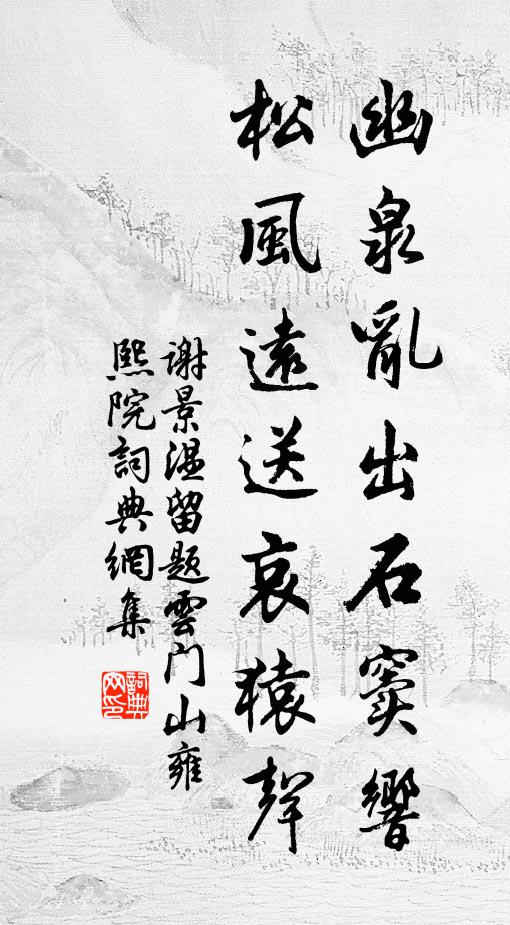 幽泉亂出石竇響
松風遠送哀猿聲
謝景溫留題雲门山雍
熙院詞典網集
詞典网印